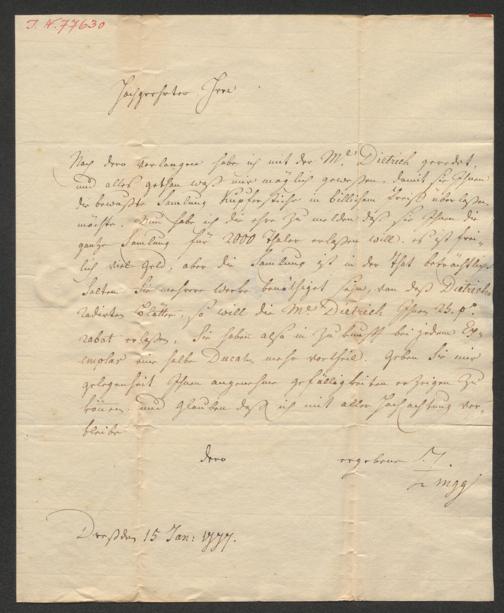 J. N. 77630
Hochgeehrter Herr
Nach dero verlangen habe ich mit der Me. Dietrich geredet,
und alles gethan waß mir möglich gewesen, damit sie Ihnen
die bewußte Samlung Kupferstiche in billichem Preiß überlaßen
möchte. Nun habe ich die ehre zu melden daß sie Ihnen die
ganze Samlung für 2000 Thaler erlaßen will. es ist frei-
lich viel Geld, aber die Samlung ist in der That beträchtlich.
Solten Sie mehrere Werke benöthiget seyn, von deß Dietrichs
radirten Blätter, so will die Me Dietrich Ihnen 25 p.
rabat erlaßen. Sie haben also in Zukunft bei jedem Ex-
emplar eine halbe Ducaten mehr vortheil. Geben Sie mir
gelegenheit Ihnen angenehme gefälligkeiten erzeigen zu
können, und glauben daß ich mit aller Hochachtung ver-
bleibe
dero ergebene
Zingg
Dreßden 15 Jan: 1777.